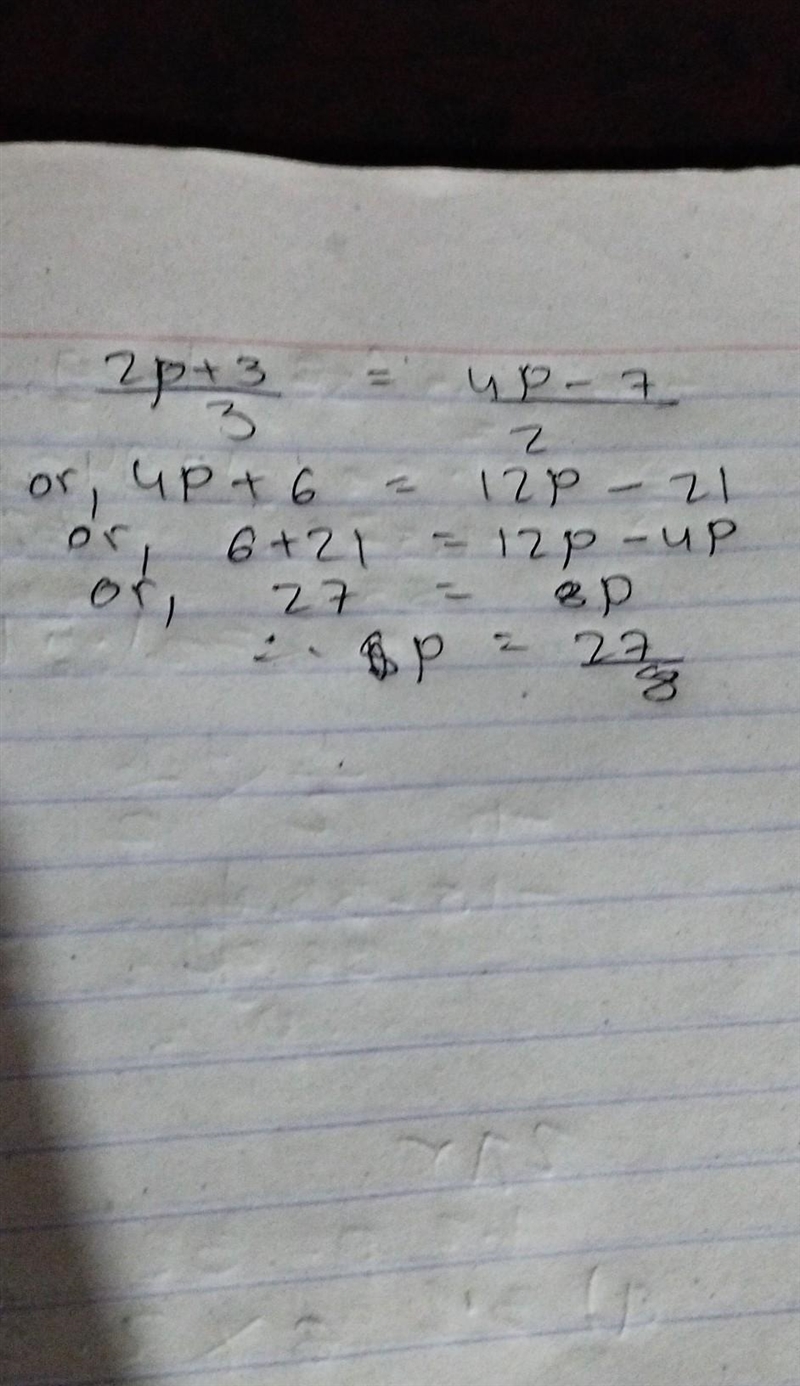 2p+3/3 = 4p-7/2
or, 4p+6 = 12p-21
or, 6+21 = 12p-4p
or, 27 = 8p
∴ p = 27/8